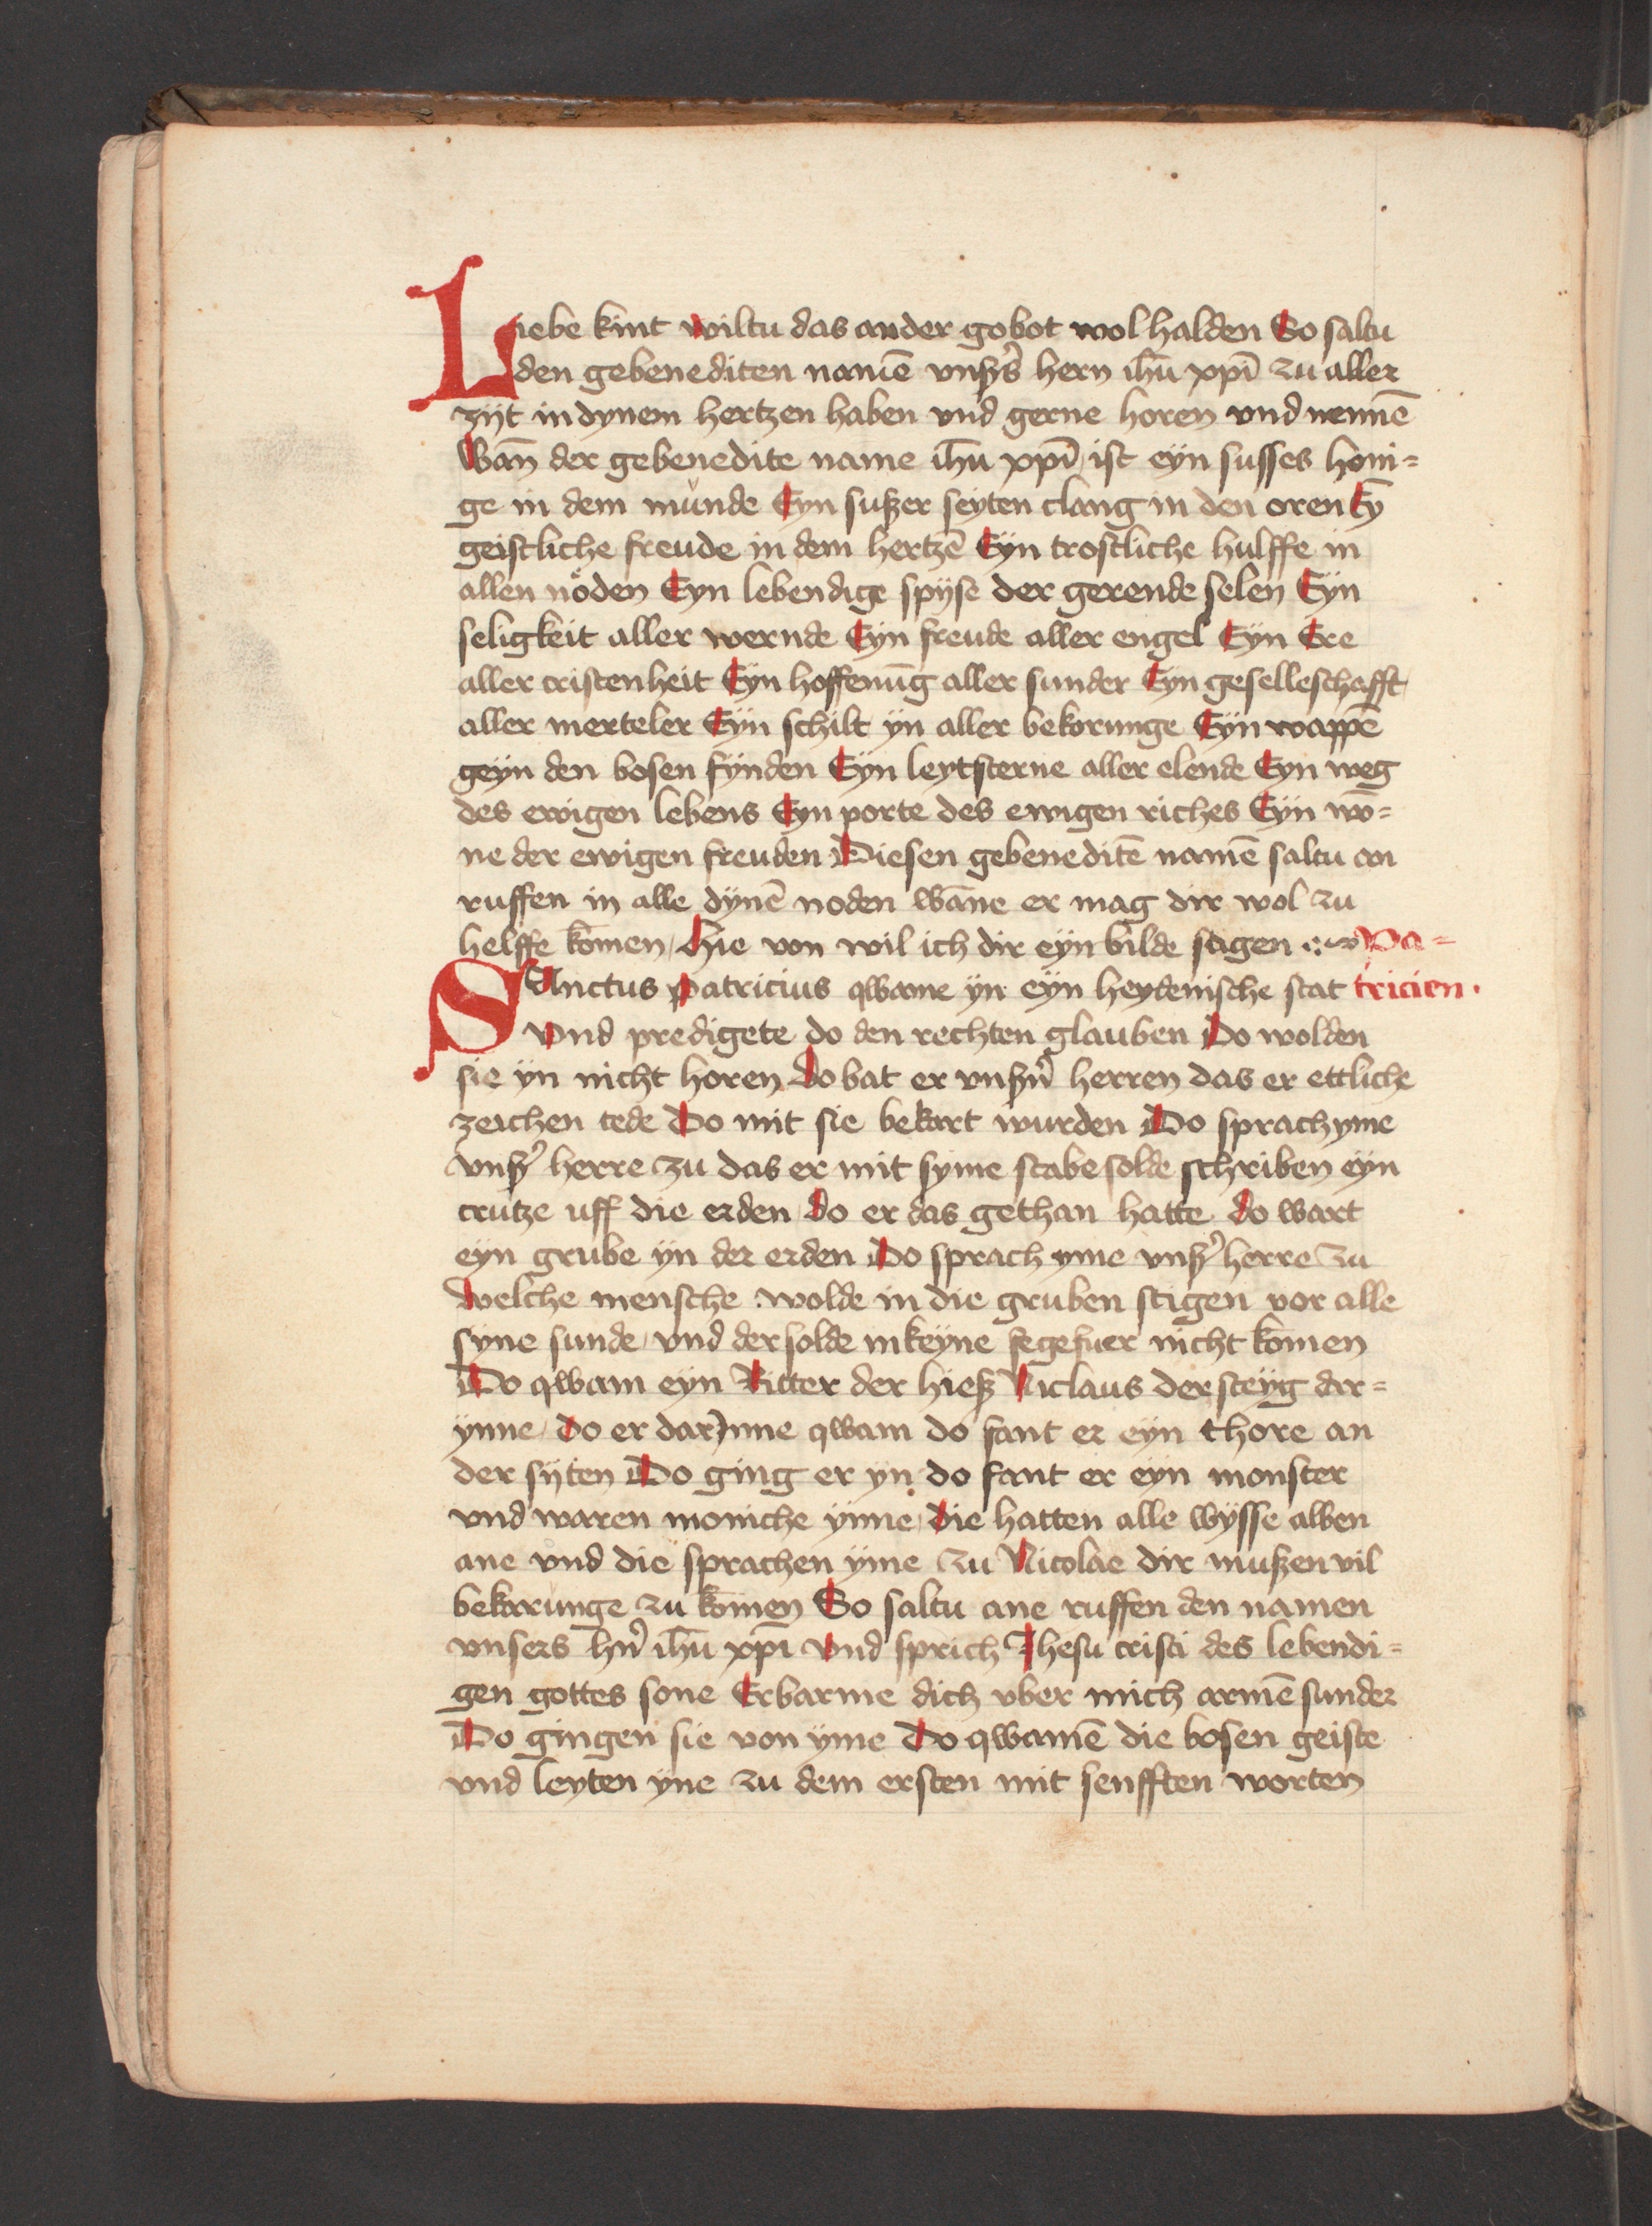 Liebe kint wiltu das ander gobot wol halden So saltu
den gebenediten namē vnßs̉ hern ih̄u xp̄i zu aller
zijt in dynem hertzen haben vnd gerne horen vnd nennē
Wan̄ der gebenedite name ih̄u xp̄i ist eyn susses honi=
ge in dem munde Eyn sußer seyten clang in den oren Eȳ
geistliche freude in dem hertzē Eyn trostliche hulffe in
allen nöden Eyn lebendige spyse der gerende selen Eyn
seligkeit aller wernde Eyn freude aller engel Eyn Ere
aller cristenheit Eyn hoffenūg aller sunder Eyn geselleschafft
aller merteler Eyn schilt yn aller bekorunge Eyn wappē
geyn den bosen fynden Eyn leytsterne aller elende Eyn weg
des ewigen lebens Eyn porte des ewigen riches Eyn wō=
ne der ewigen freuden Diesen gebeneditē namē saltu an
ruffen in alle dynē noden wāne er mag dir wol zu
helffe kōmen, Hie von wil ich dir eyn bilde sagen Pa=
SAnctus patricius qwame yn eyn heydenische stat tricien.
Vnd predigete do den rechten glauben Do wolden
sie yn nicht horen Do bat er vnßn̉ herren das er ettliche
zeichen tede Do mit sie bekart wurden Do sprach yme
vnß̉ herre zu das er mit syme stabe solde schriben eyn
crutze uff die erden Do er das gethan hatte do wart
eyn grube yn der erden Do sprach yme vnß̉ herre zu
Welche mensche wolde in die gruben stigen vor alle
syne sunde, vnd der solde in keyne fegefuer nicht kōmen
Do qwam eyn Ritter der hieß Niclaus der steyg dar=
ynne, do er darynne qwam do fant er eyn thore an
der sijten Do ging er yn do fant er eyn monster
vnd waren moniche ynne, die hatten alle wysse alben
ane vnd die sprachen yme zu Nicolae dir mußen vil
bekarunge zu kōmen So saltu ane ruffen den namen
vnsers hn̉ ih̄u xp̄i Vnd sprich Jhesu cristi des lebendi=
gen gottes sone Erbarme dich vber mich armē sunder
Do gingen sie von yme Do qwamē die bosen geiste
vnd leyten yne zu dem ersten mit senfften worten